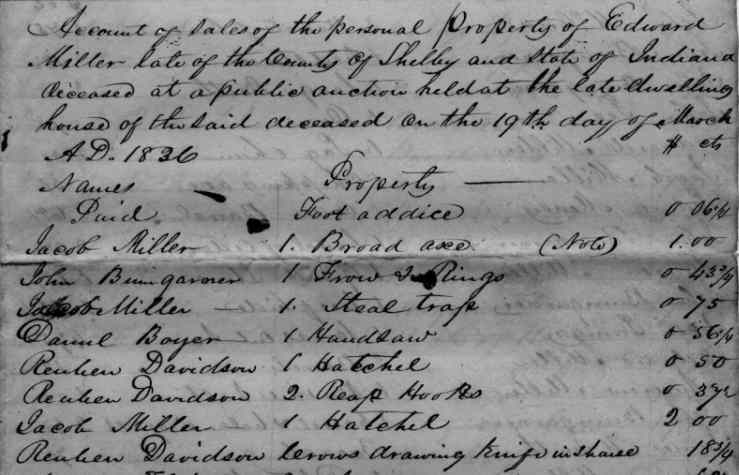 Account of Sales of the personal Property of Edward
Miller late of the County of Shelby and State of Indiana
deceased at a public auction held at the late dwelling
house of the said deceased on the 19th day of March
A.D. 1836 $ cts
Names Property
Paid Foot addice 0 06 1/4
Jacob Miller 1. Broad axe (Note) 1.00
John Bumgarner 1 Frow & Rings 0 43 3/4
Jacob Miller 1. Steal trap 0 75
Daniel Boyer 1 Handsaw 0 56 1/4
Reuben Davidson 1 Hatchel 0 50
Reuben Davidson 2. Reap Hooks 0 37 1/2
Jacob Miller 1 Hatchel 2 00
Reuben Davidson drawing knife 18 3/4